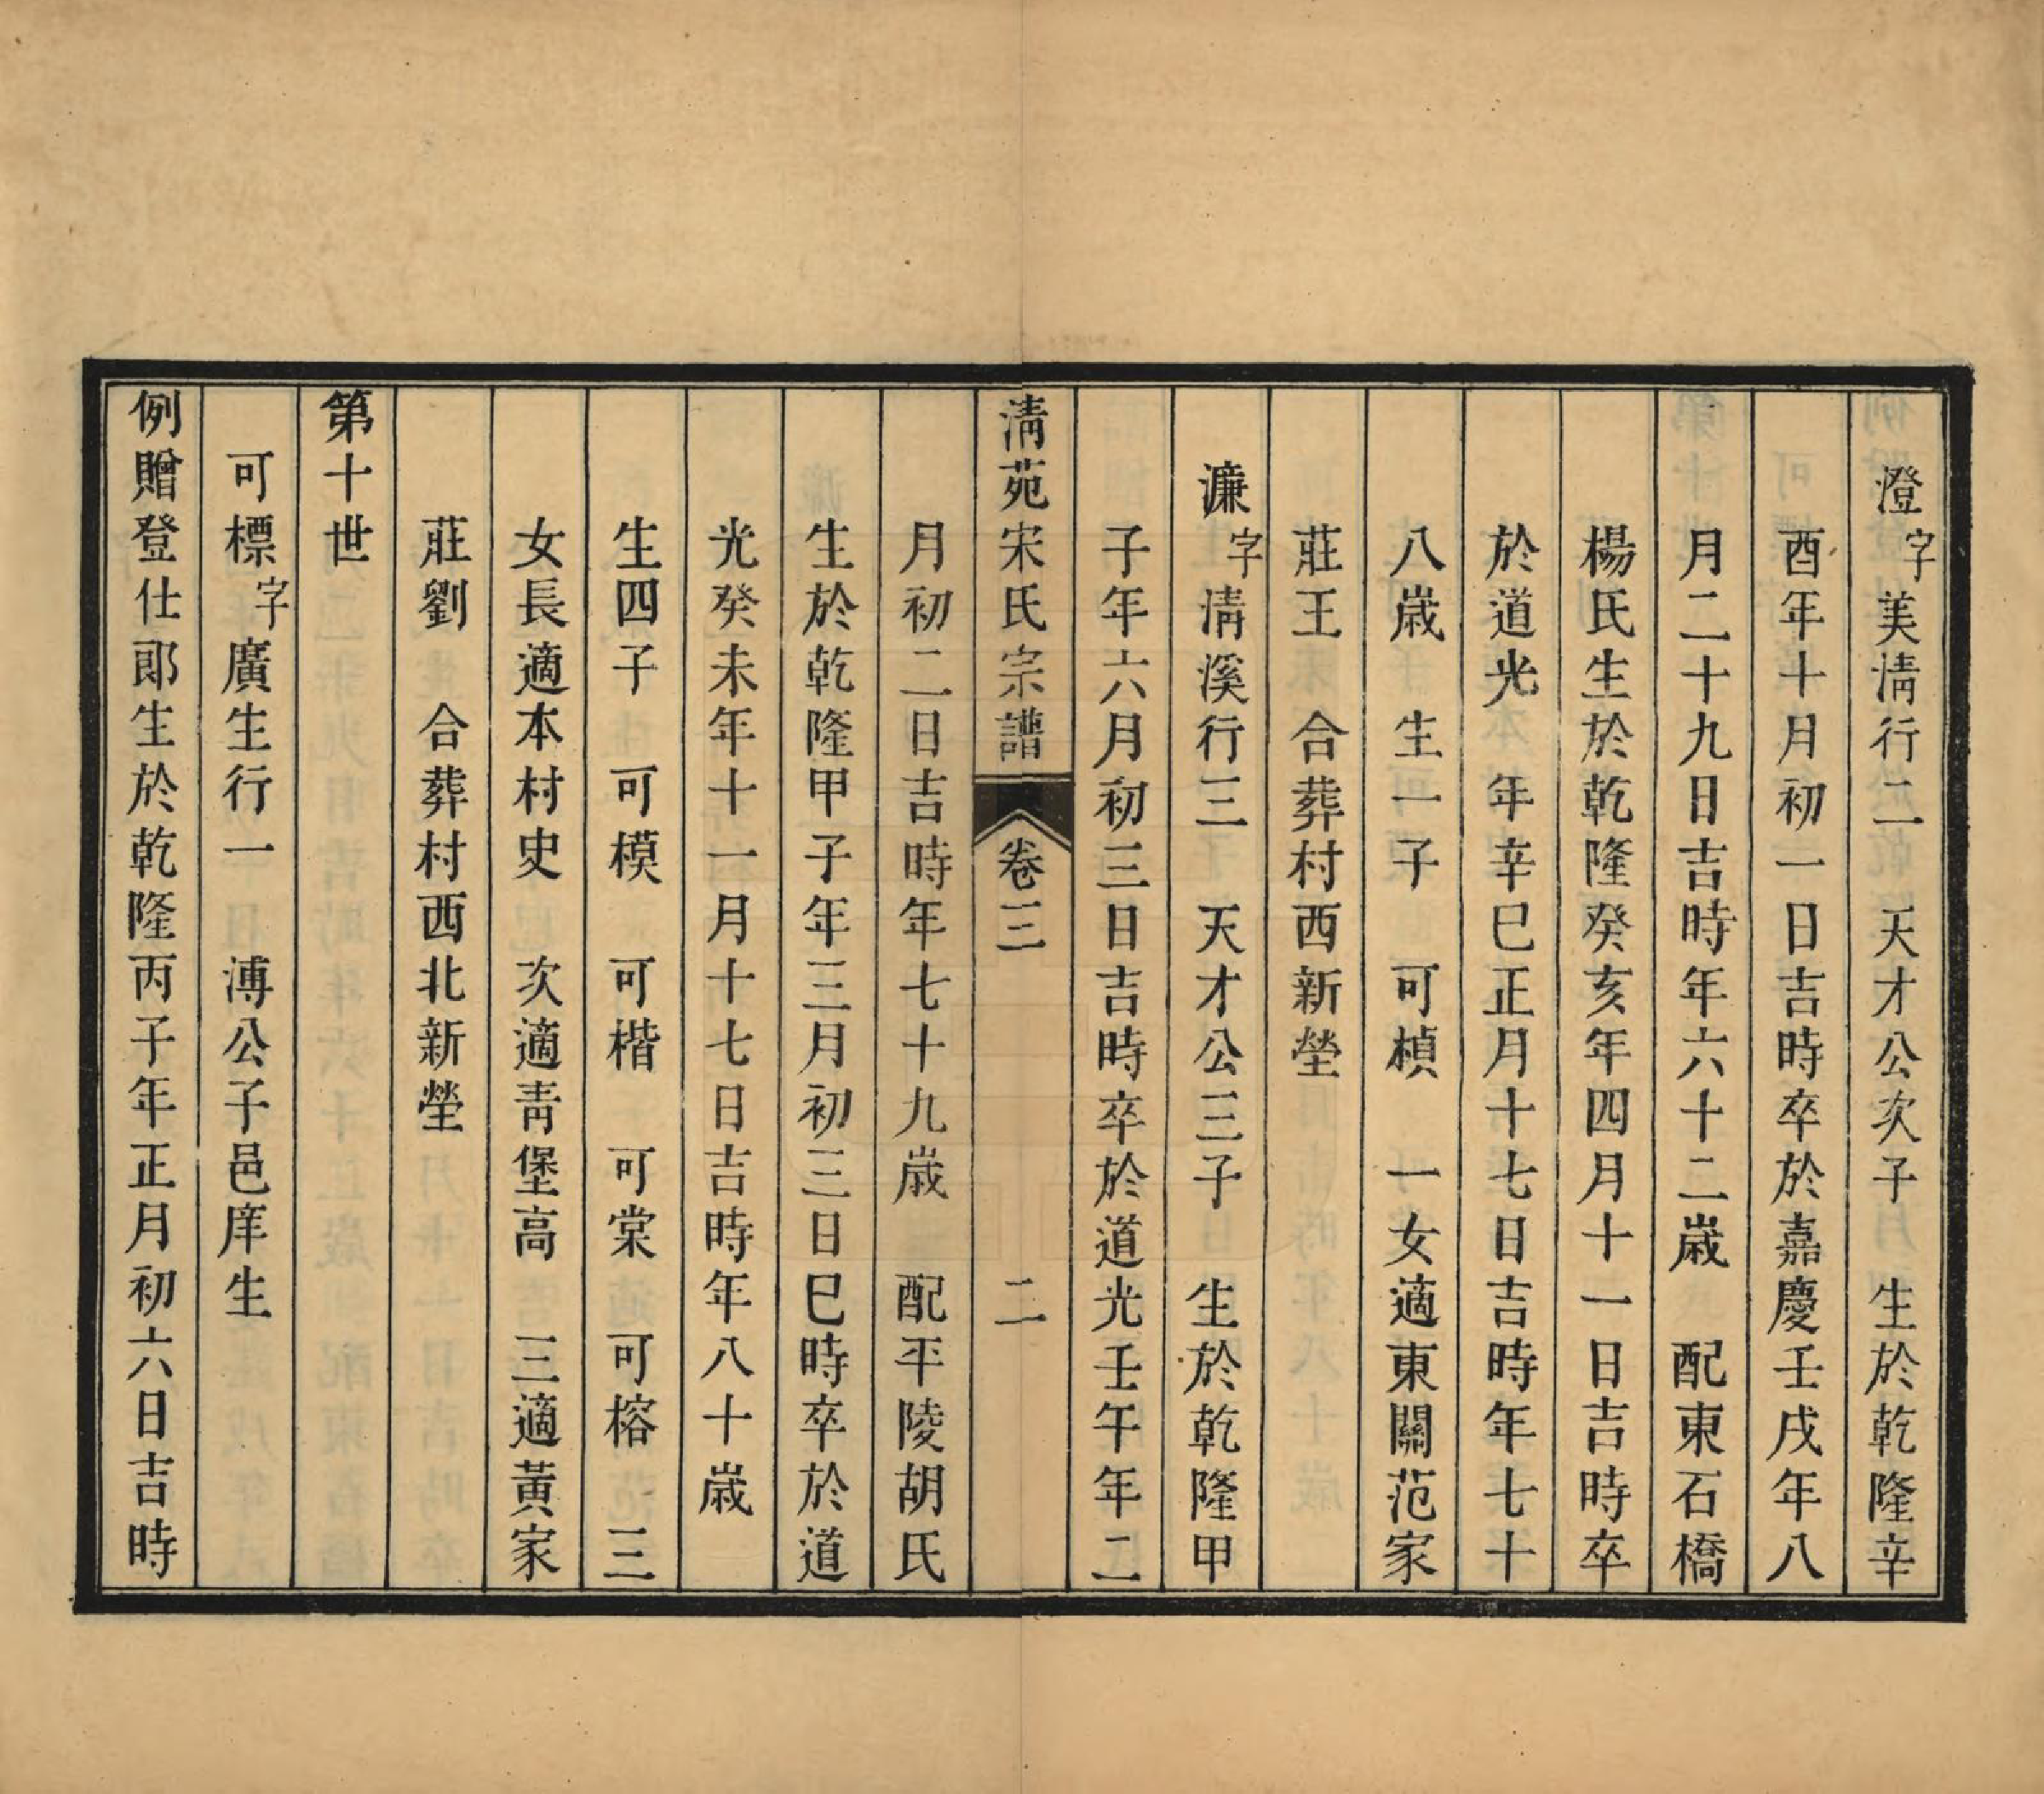 澄字美清行二　天才公次子　生於乾隆辛
酉年十月初一日吉時卒於嘉慶壬戌年八
月二十九日吉時年六十二歲　配東石橋
楊氏生於乾隆癸亥年四月十一日吉時卒
於道光　年辛巳正月十七日吉時年七十
八歲　生一子　可楨　一女適東關范家
莊王　合葬村西新塋
濂字清溪行三　天才公三子　生於乾隆甲
子年六月初三日吉時卒於道光壬午年二
清苑宋氏宗譜　卷三　二
月初二日吉時年七十九歲　配平陵胡氏
生於乾隆甲子年三月初三日巳時卒於道
光癸未年十一月十七日吉時年八十歲
生四子　可模　可楷　可棠　可榕　三
女長適本村史　次適青堡高　三適黃家
莊劉　合葬村西北新塋
第十世
可標字廣生行一　溥公子邑庠生
例贈登仕郎生於乾隆丙子年正月初六日吉時